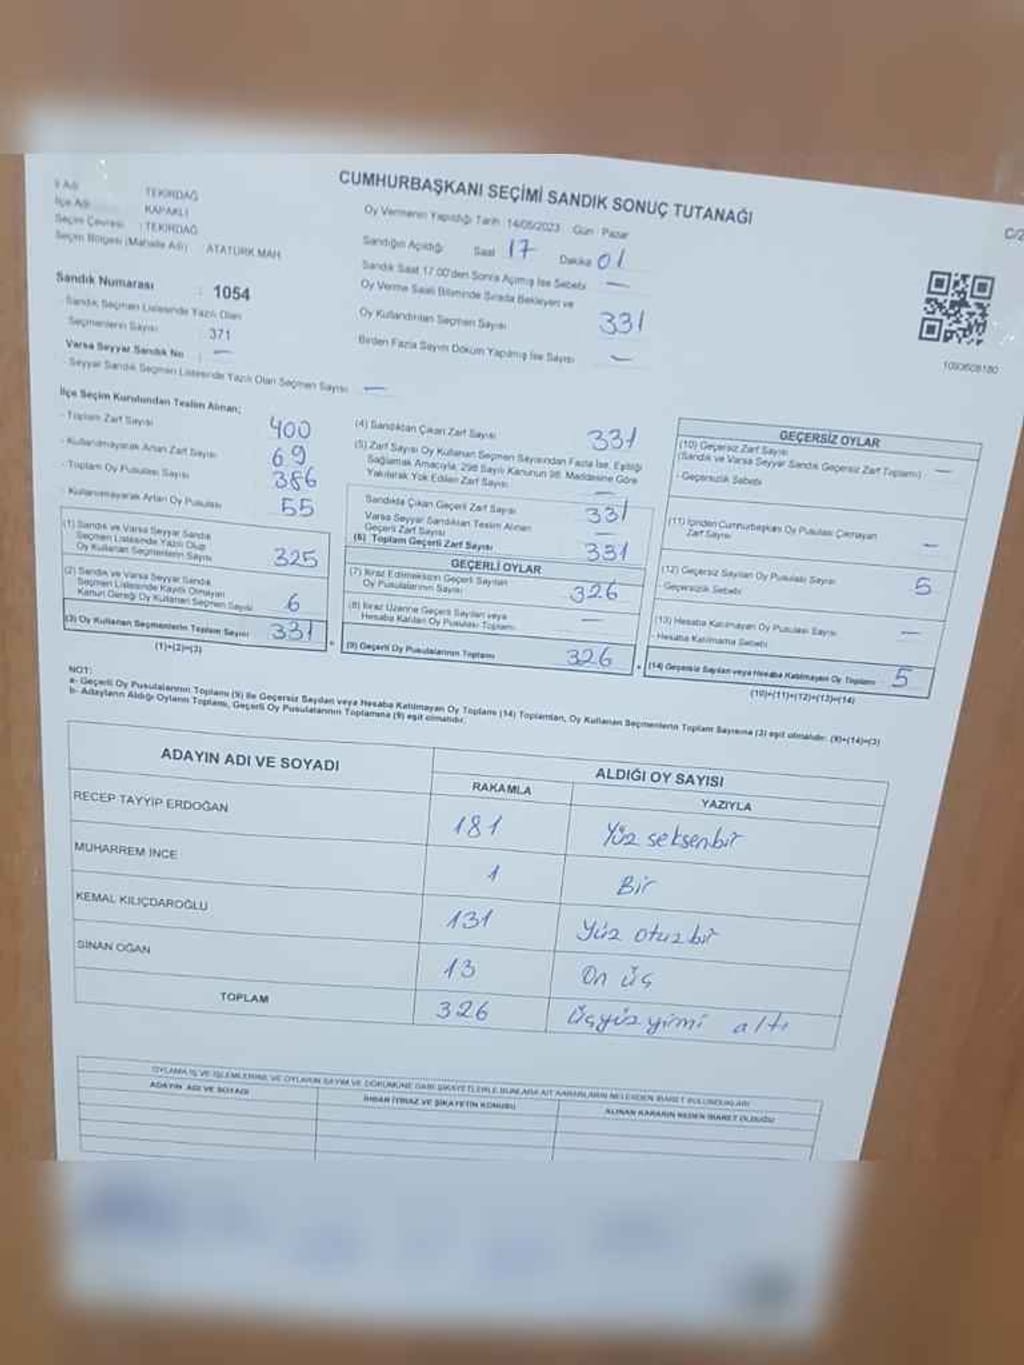 CUMHURBAŞKANI SEÇİMİ SANDIK SONUÇ TUTANAĞI
C/2
İl Adı TEKİRDAĞ
İlçe Adı KAPAKLI
Seçim Çevresi : TEKİRDAĞ
Seçim Bölgesi (Mahalle Adı) ATATÜRK MAH
Oy Vermenin Yapıldığı Tarih : 14/05/2023 Gün : Pazar
Sandığın Açıldığı Saat 17 Dakika 01
Sandık Saat 17.00'den Sonra Açılmış İse Sebebi —
Oy Verme Saati Bitiminde Sırada Bekleyen ve
Oy Kullandırılan Seçmen Sayısı 331
Birden Fazla Sayım Döküm Yapılmış İse Sayısı —
1093608180
Sandık Numarası : 1054
- Sandık Seçmen Listesinde Yazılı Olan
Seçmenlerin Sayısı 371
Varsa Seyyar Sandık No : —
- Seyyar Sandık Seçmen Listesinde Yazılı Olan Seçmen Sayısı —
İlçe Seçim Kurulundan Teslim Alınan;
- Toplam Zarf Sayısı 400
- Kullanılmayarak Artan Zarf Sayısı 69
- Toplam Oy Pusulası Sayısı 386
- Kullanılmayarak Artan Oy Pusulası 55
(1) Sandık ve Varsa Seyyar Sandık
Seçmen Listesinde Yazılı Olup
Oy Kullanan Seçmenlerin Sayısı 325
(2) Sandık ve Varsa Seyyar Sandık
Seçmen Listesinde Kayıtlı Olmayan
Kanun Gereği Oy Kullanan Seçmen Sayısı 6
(3) Oy Kullanan Seçmenlerin Toplam Sayısı 331
(1)+(2)=(3)
(4) Sandıktan Çıkan Zarf Sayısı 331
(5) Zarf Sayısı Oy Kullanan Seçmen Sayısından Fazla İse, Eşitliği
Sağlamak Amacıyla; 298 Sayılı Kanunun 98. Maddesine Göre
Yakılarak Yok Edilen Zarf Sayısı —
Sandıkta Çıkan Geçerli Zarf Sayısı 331
Varsa Seyyar Sandıktan Teslim Alınan
Geçerli Zarf Sayısı —
(6) Toplam Geçerli Zarf Sayısı 331
GEÇERLİ OYLAR
(7) İtiraz Edilmeksizin Geçerli Sayılan
Oy Pusulalarının Sayısı 326
(8) İtiraz Üzerine Geçerli Sayılan veya
Hesaba Katılan Oy Pusulası Toplamı —
(9) Geçerli Oy Pusulalarının Toplamı 326
GEÇERSİZ OYLAR
(10) Geçersiz Zarf Sayısı
(Sandık ve Varsa Seyyar Sandık Geçersiz Zarf Toplamı) —
- Geçersizlik Sebebi
(11) İçinden Cumhurbaşkanı Oy Pusulası Çıkmayan
Zarf Sayısı —
(12) Geçersiz Sayılan Oy Pusulası Sayısı 5
- Geçersizlik Sebebi
(13) Hesaba Katılmayan Oy Pusulası Sayısı —
- Hesaba Katılmama Sebebi
(14) Geçersiz Sayılan veya Hesaba Katılmayan Oy Toplamı 5
(10)+(11)+(12)+(13)=(14)
NOT:
a- Geçerli Oy Pusulalarının Toplamı (9) ile Geçersiz Sayılan veya Hesaba Katılmayan Oy Toplamı (14) Toplamları, Oy Kullanan Seçmenlerin Toplam Sayısına (3) eşit olmalıdır. (9)+(14)=(3)
b- Adayların Aldığı Oyların Toplamı, Geçerli Oy Pusulalarının Toplamına (9) eşit olmalıdır.
ADAYIN ADI VE SOYADI
ALDIĞI OY SAYISI
RAKAMLA YAZIYLA
RECEP TAYYİP ERDOĞAN 181 Yüz seksenbir
MUHARREM İNCE 1 Bir
KEMAL KILIÇDAROĞLU 131 Yüz otuzbir
SİNAN OĞAN 13 On üç
TOPLAM 326 Üçyüzyirmi altı
OYLAMA İŞ VE İŞLEMLERİNE VE OYLARIN SAYIM VE DÖKÜMÜNE DAİR ŞİKAYETLERLE BUNLARA AİT KARARLARIN NELERDEN İBARET BULUNDUKLARI
ADAYIN ADI VE SOYADI
İHBAR İTİRAZ VE ŞİKAYETİN KONUSU
ALINAN KARARIN NEDEN İBARET OLDUĞU